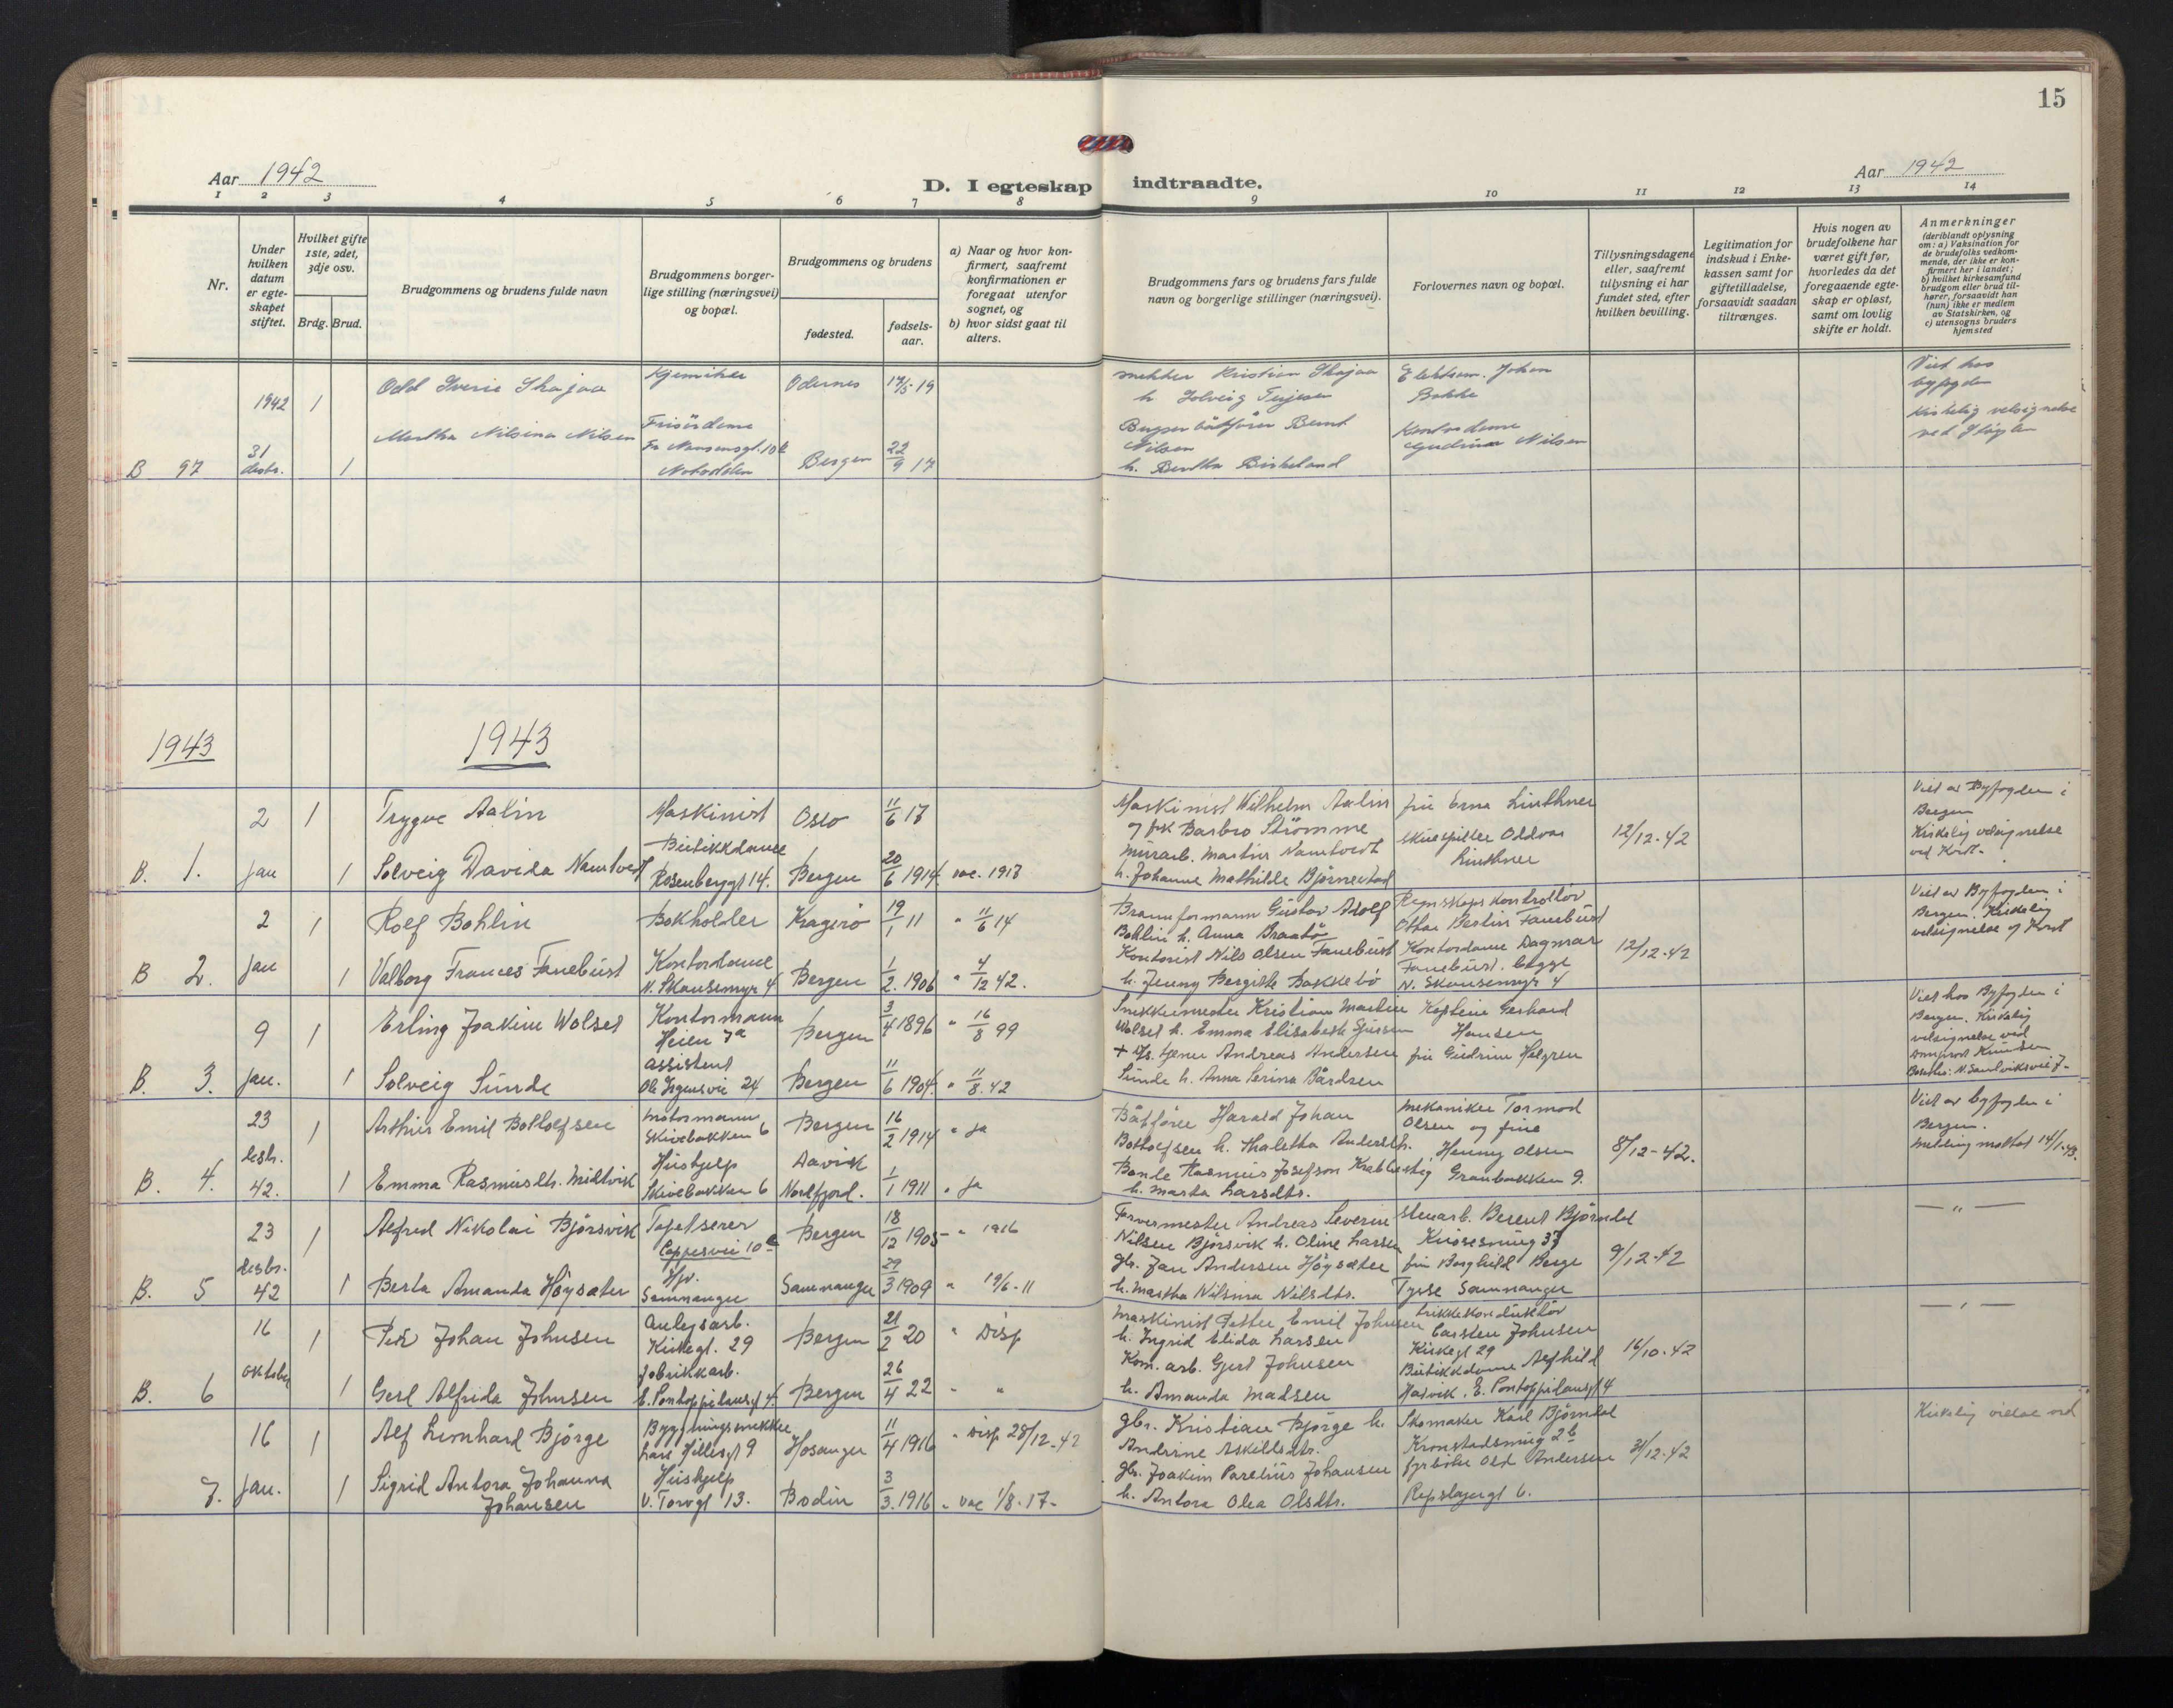 15
Aar 1942
D. I egteskap indtraadte.
Aar 1942
1 2 3 4 5 6 7 8 9 10 11 12 13 14
Nr.
Under hvilken datum er egte-skapet stiftet.
Hvilket gifte 1ste, 2det, 3dje osv.
Brdg. Brud.
Brudgommens og brudens fulde navn
Brudgommens borger-lige stilling (næringsvei) og bopæl.
Brudgommens og brudens
fødested.
fødsels-aar.
a) Naar og hvor kon-firmert, saafremt konfirmationen er foregaat utenfor sognet, og
b) hvor sidst gaat til alters.
Brudgommens fars og brudens fars fulde navn og borgerlige stillinger (næringsvei).
Forlovernes navn og bopæl.
Tillysningsdagene eller, saafremt tillysning ei har fundet sted, efter hvilken bevilling.
Legitimation for indskud i Enke-kassen samt for giftetilladelse, forsaavidt saadan tiltrænges.
Hvis nogen av brudefolkene har været gift før, hvorledes da det foregaaende egte-skap er opløst, samt om lovlig skifte er holdt.
Anmerkninger
(deriblandt oplysning om: a) Vaksination for de brudefolks vedkom-mende, der ikke er kon-firmert her i landet; b) hvilket kirkesamfund brudgom eller brud til-hører, forsaavidt han (hun) ikke er medlem av Statskirken, og c) utensogns bruders hjemsted
B 97
1942 31 desbr.
1 1
Odd Sverre Skajaa
Kjemiker
Odernes
17/5-19
Kristian Skajaa
h. Solveig Terjesen
Elektrom. Johan Bakke
Viet hos byfogden
Kirkelig velsignelse ved
Martha Nilsina Nilsen
Frisördame
Fr. Nansensgt. 10b
Notodden
Bergen
22/9 17
Bugserbåtförer Bernt Nilsen
h. Bertha Birkeland
Kontordame Gudrun Nilsen
1943
1943
B. 1.
2 Jan
1 1
Trygve Aalin
Maskinist
Oslo
11/6 13
Maskinist Wilhelm Aalin
og frk Barbro Strömme
fru Erna Linthner
skuespiller Oddvar Linthner
12/12-42
Viet av Byfogden i Bergen
Kirkelig velsignelse ved Knst.
Solveig Davida Namtvedt
Butikkdame
Rosenbergsgt 14.
Bergen
20/6 1914.
vac. 1913
Murarb. Martin Namtvedt
h. Johanne Mathilde Björnestad
B 2.
2 Jan
1 1
Rolf Bohlin
Bokholder
Kragerö
19/1 11
" 11/6 14
Brannformann Gustav Adolf
Bohlin h. Anna Braatö
Regnskapskontrollör
Ottar Bertin Fanebust
12/12-42
Viet av Byfogden i Bergen. Kirkelig velsignelse af Knst
Valborg Frances Fanebust
Kontordame
N. Skansemyr 4
Bergen
1/2. 1906
" 4/12 42.
Kontorist Nils Olsen Fanebust
h. Jenny Bergithe Bakkebö
Kontordame Dagmar
Fanebust. begge
N. Skansemyr 4
B. 3.
9 Jan.
1 1
Erling Joakim Wolset
Kontormann
Heien 7a
Bergen
3/4 1896
" 16/8 99
Snekkermester Kristian Martin
Wolset h. Emma Elisabeth Sjursen
Kaptein Gerhard Hansen
Viet hos Byfogden i Bergen. Kirkelig velsignelse ved Knudsen
Solveig Sunde
assistent
Ole Irgensvei 24
Bergen
11/6 1904.
" 11/8. 42
Andreas Andersen
Sunde h. Anna Serina Bårdsen
fru Gudrun Holgren
B. 4.
23 desbr. 42.
1 1
Arthur Emil Botholfsen
motormann
Skivebakken 6
Bergen
16/2 1914
" ja
Båtförer Harald Johan
Botholfsen h. Thaletha Andersdtr.
Mekaniker Tormod
Olsen og frue
Henny Olsen
Granbakken 9.
8/12-42.
Viet av byfogden i Bergen.
Melding mottat 14/1-43.
Emma Rasmusdtr. Midtvik
Hushjelp
Skivebakken 6
Davik
Nordfjord.
1/1 1911
" ja
Bonde Rasmus Josefson
h. Marta Larsdtr.
B. 5
23 desbr. 42
1 1
Alfred Nikolai Björsvik
Tapetserer
Bergen
18/12 1905
" 1916
Farvermester Andreas Severin
Nilsen Björsvik h. Oline Larsen
stuearb. Berent Björndal
9/12-42
— " —
Berta Amanda Höysæter
Hpv.
Samnanger
Samnanger
29/3 1909
" 19/6-11
gbr. Jan Andersen Höysæter
h. Martha Nilsina Nilsdtr.
fru Borghild Berge
Tysse Samnanger
B. 6
16 oktober
1 1
Per Johan Johnsen
Anlegsarb.
Kirkegt. 29
Bergen
21/2 20
" Disp
Maskinist Petter Emil Johnsen
h. Ingrid Elida Larsen
trikkekonduktör
Carsten Johnsen
Kirkegt 29
16/10-42
— " —
Gerd Alfrida Johnsen
fabrikkarb.
E. Pontoppidansgt 4.
Bergen
26/4 22
" "
Kom. arb. Gert Johnsen
h. Amanda Madsen
Butikkdame Alfhild
Hasvik. E. Pontoppidansgt 4
7.
16 Jan.
1 1
Alf Lernhard Björge
Bygningssnekker
Lars Hillesgt 9
Hosanger
11/4 1916
" Disp 28/12-42
gbr. Kristian Björge h.
Andrine Askildsdtr.
Skomaker Karl Björndal
31/12-42
Kirkelig vielse ved
Sigrid Antora Johanna
Johansen
Hushjelp
V. Torvgt 13.
Bodin
3/3. 1916
" vac 1/8-17-
gbr. Joakim Parelius Johansen
h. Antora Olea Olsdtr.
fyrböter Odd Andersen
Repslagergt 6.